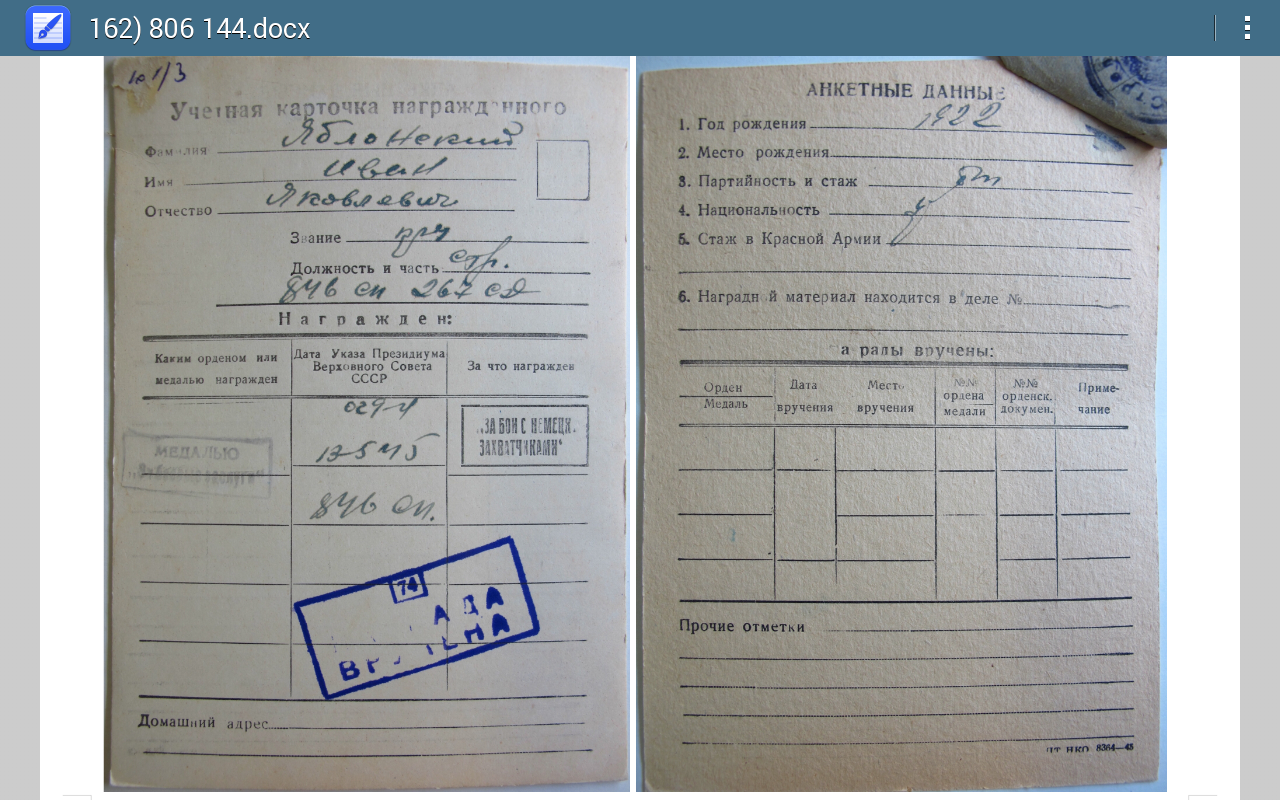 162) 806 144.docx
Учетная карточка награжденного
Фамилия Яблонский
Имя Иван
Отчество Яковлевич
Звание кр-ц
Должность и часть стр.
846 сп 267 сд
Награжден:
Каким орденом или медалью награжден
Дата Указа Президиума Верховного Совета СССР
За что награжден
029-н
МЕДАЛЬЮ
„За боевые заслуги“
13-5 45
„ЗА БОИ С НЕМЕЦК.
ЗАХВАТЧИКАМИ“
846 сп.
74
НАГРАДА
ВРУЧЕНА
Домашний адрес
АНКЕТНЫЕ ДАННЫЕ
1. Год рождения 1922
2. Место рождения
3. Партийность и стаж б/п
4. Национальность
5. Стаж в Красной Армии
6. Наградной материал находится в деле №
а рады вручены:
Орден
Медаль
Дата вручения
Место вручения
№№ ордена медали
№№ орденск. докумен.
Приме-
чание
Прочие отметки
ЦТ НКО 8364—45